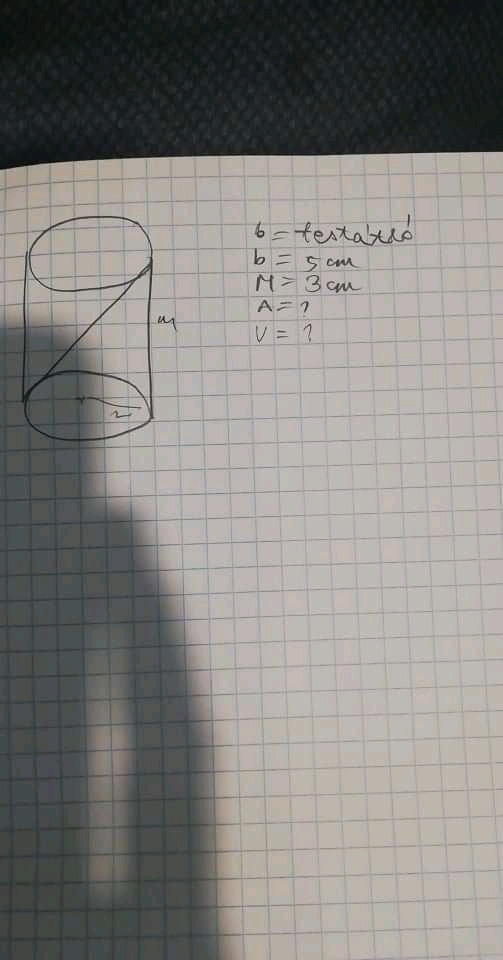 b = testátló
b = 5 cm
M = 3 cm
A = ?
V = ?
m
r